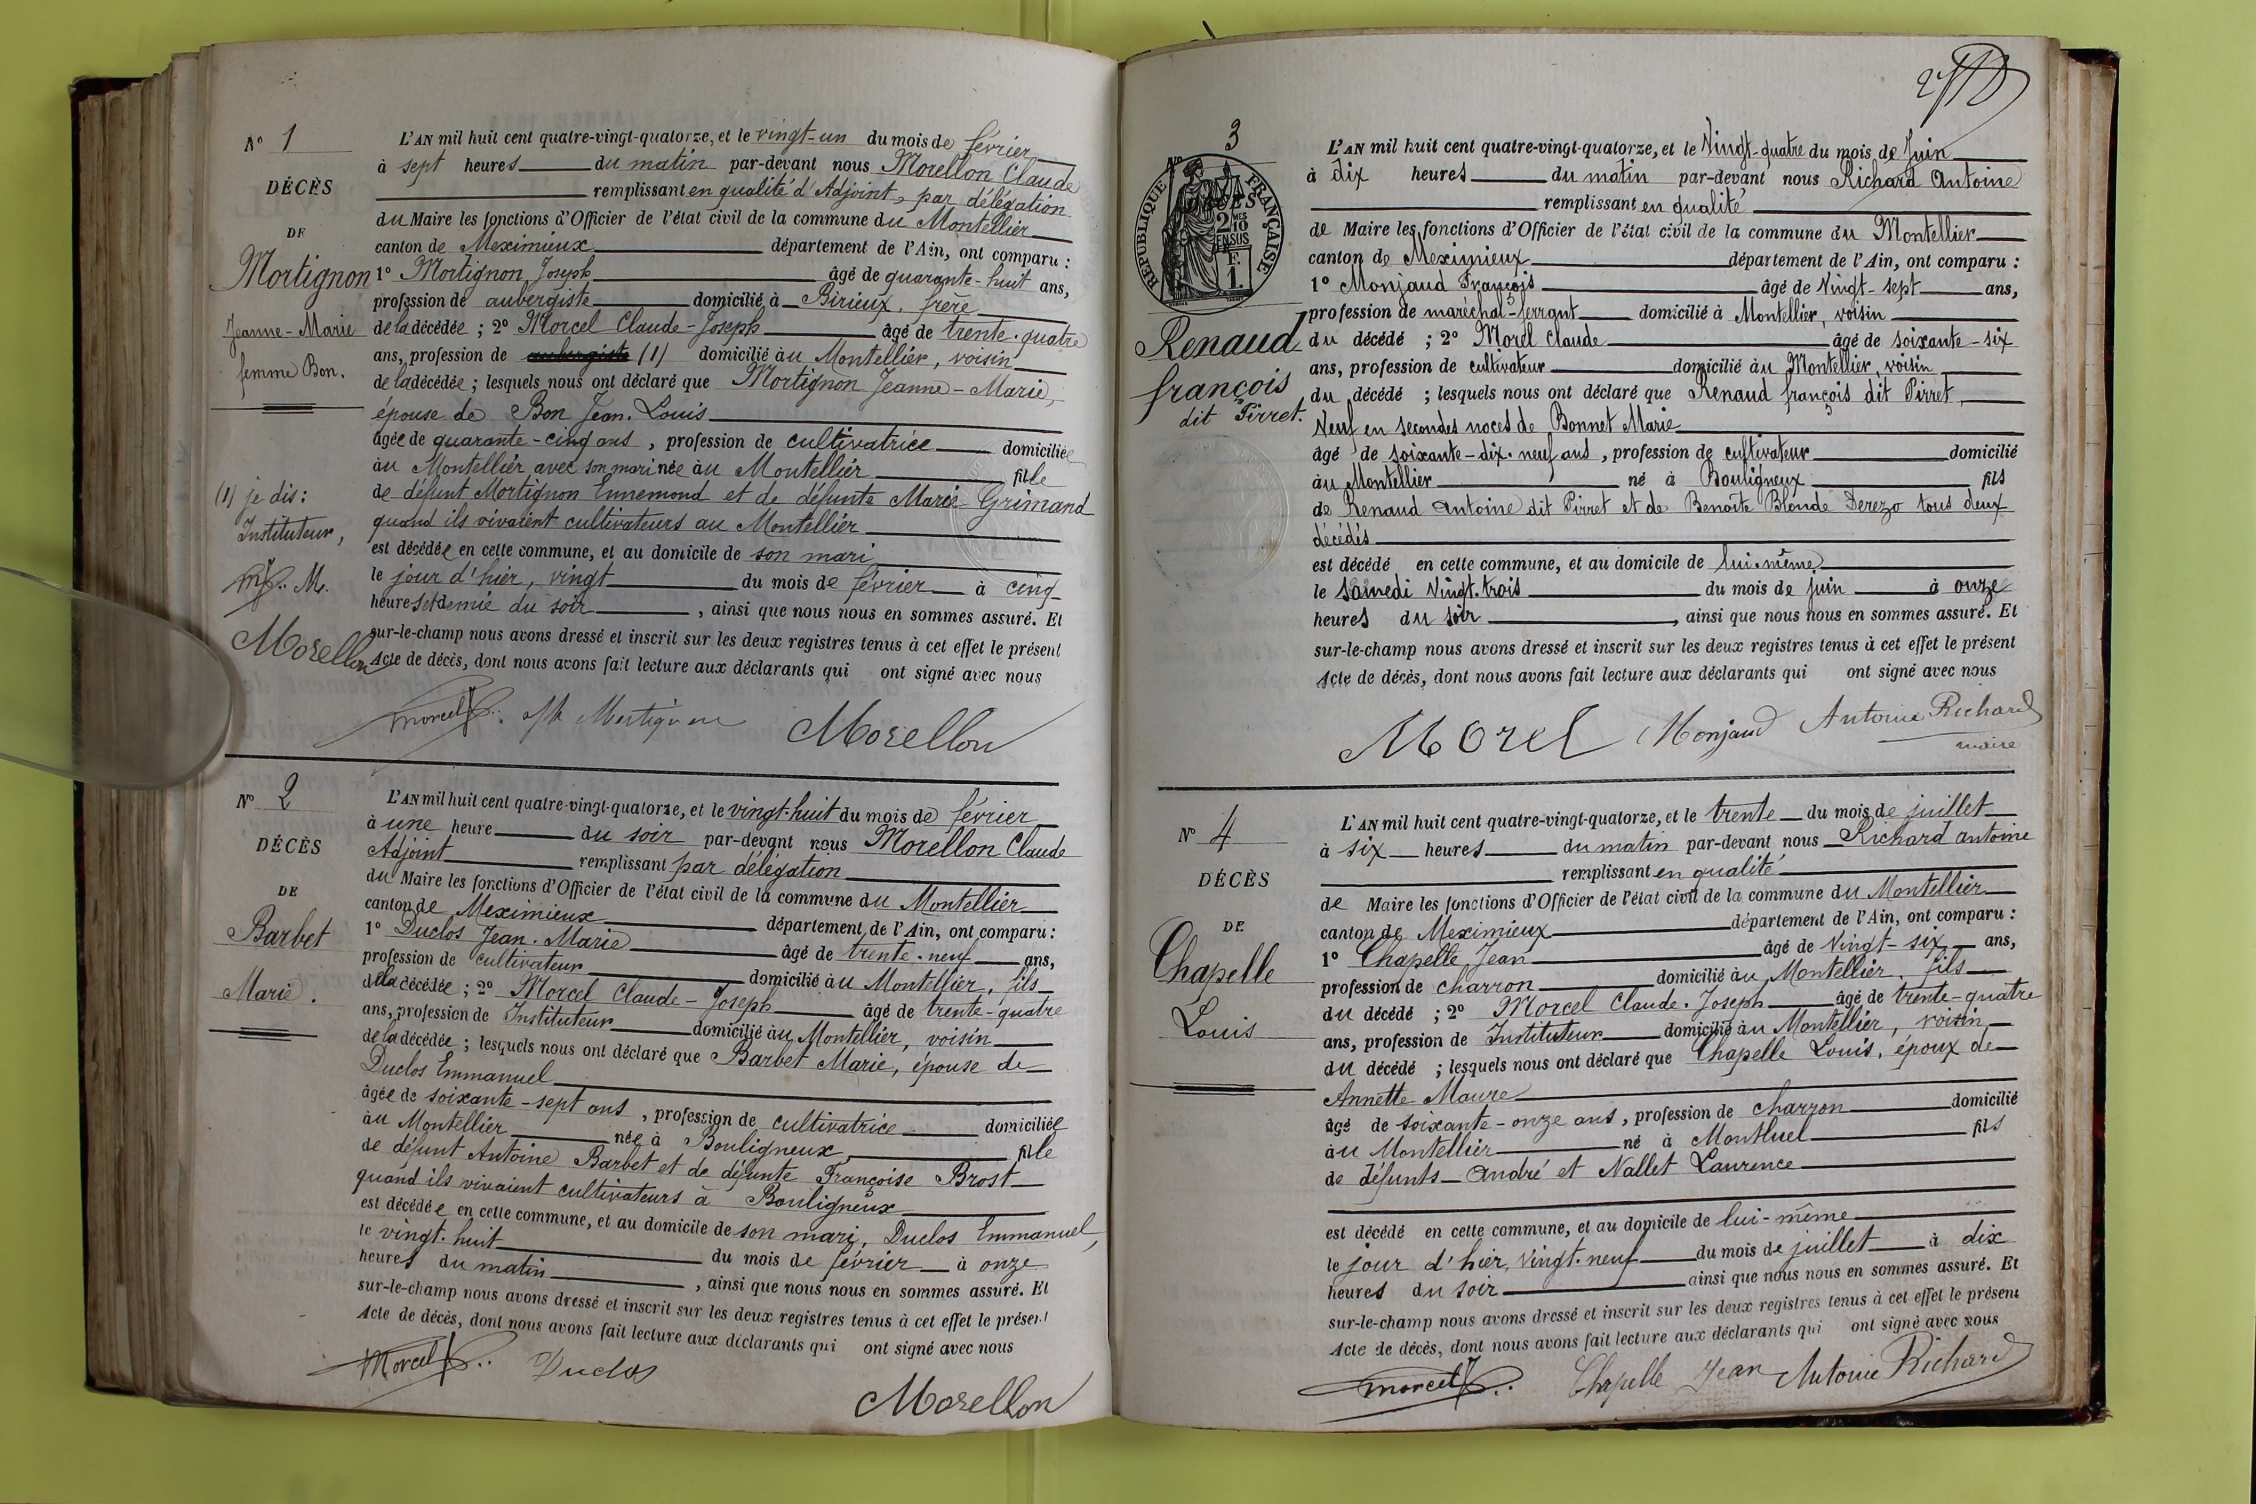 N° 1
DÉCÈS
DE
Mortignon
Jeanne-Marie
femme Bon.
(1) je dis:
Instituteur,
M.
Morellon
L'AN mil huit cent quatre-vingt-quatorze, et le vingt-un du mois de février
à sept heures du matin par-devant nous Morellon Claude
remplissant en qualité d'Adjoint, par délégation
du Maire les fonctions d'Officier de l'état civil de la commune du Montellier
canton de Meximieux département de l'Ain, ont comparu :
1° Mortignon Joseph âgé de quarante-huit ans,
profession de aubergiste domicilié à Birieux, frère
de la décédée ; 2° Morcel Claude-Joseph âgé de trente-quatre
ans, profession de aubergiste (1) domicilié au Montellier, voisin
de la décédée ; lesquels nous ont déclaré que Mortignon Jeanne-Marie,
épouse de Bon Jean-Louis
âgée de quarante-cinq ans, profession de cultivatrice domiciliée
au Montellier avec son mari née au Montellier fille
de défunt Mortignon Ennemond et de défunte Marie Grimand
quand ils vivaient cultivateurs au Montellier
est décédée en cette commune, et au domicile de son mari
le jour d'hier, vingt du mois de février à cinq
heures et demie du soir, ainsi que nous nous en sommes assuré. Et
sur-le-champ nous avons dressé et inscrit sur les deux registres tenus à cet effet le présent
Acte de décès, dont nous avons fait lecture aux déclarants qui ont signé avec nous
Morcel Mortignon Morellon
N° 2
DÉCÈS
DE
Barbet
Marie.
L'AN mil huit cent quatre-vingt-quatorze, et le vingt-huit du mois de février
à une heure du soir par-devant nous Morellon Claude
Adjoint remplissant par délégation
du Maire les fonctions d'Officier de l'état civil de la commune du Montellier
canton de Meximieux département de l'Ain, ont comparu :
1° Duclos Jean-Marie âgé de trente-neuf ans,
profession de cultivateur domicilié au Montellier, fils
de la décédée ; 2° Morcel Claude-Joseph âgé de trente-quatre
ans, profession de Instituteur domicilié au Montellier, voisin
de la décédée ; lesquels nous ont déclaré que Barbet Marie, épouse de
Duclos Emmanuel
âgée de soixante-sept ans, profession de cultivatrice domiciliée
au Montellier née à Bouligneux, fille
de défunt Antoine Barbet et de défunte Françoise Brost
quand ils vivaient cultivateurs à Bouligneux
est décédée en cette commune, et au domicile de son mari, Duclos Emmanuel,
le vingt-huit du mois de février à onze
heures du matin, ainsi que nous nous en sommes assuré. Et
sur-le-champ nous avons dressé et inscrit sur les deux registres tenus à cet effet le présent
Acte de décès, dont nous avons fait lecture aux déclarants qui ont signé avec nous
Morcel Duclos
Morellon
N° 3
RÉPUBLIQUE FRANÇAISE
2 MES
10
EN SUS
F.
1.
Renaud
françois
dit Pirret.
L'AN mil huit cent quatre-vingt-quatorze, et le Vingt-quatre du mois de Juin
à dix heures du matin par-devant nous Richard Antoine
remplissant en qualité
de Maire les fonctions d'Officier de l'état civil de la commune du Montellier
canton de Meximieux département de l'Ain, ont comparu :
1° Monjaud François âgé de Vingt-sept ans,
profession de maréchal-ferrant domicilié à Montellier, voisin
du décédé ; 2° Morel Claude âgé de soixante-six
ans, profession de cultivateur domicilié au Montellier, voisin
du décédé ; lesquels nous ont déclaré que Renaud françois dit Pirret,
Veuf en secondes noces de Bonnet Marie
âgé de soixante-dix-neuf ans, profession de cultivateur domicilié
au Montellier né à Bouligneux fils
de Renaud Antoine dit Pirret et de Benoîte Blonde Derezo tous deux
décédés
est décédé en cette commune, et au domicile de lui-même
le Samedi Vingt-trois du mois de juin à onze
heures du soir, ainsi que nous nous en sommes assuré. Et
sur-le-champ nous avons dressé et inscrit sur les deux registres tenus à cet effet le présent
Acte de décès, dont nous avons fait lecture aux déclarants qui ont signé avec nous
Morel Monjaud Antoine Richard
maire
N° 4
DÉCÈS
DE
Chapelle
Louis
L'AN mil huit cent quatre-vingt-quatorze, et le trente du mois de juillet
à six heures du matin par-devant nous Richard antoine
remplissant en qualité
de Maire les fonctions d'Officier de l'état civil de la commune du Montellier
canton de Meximieux département de l'Ain, ont comparu :
1° Chapelle Jean âgé de Vingt-six ans,
profession de charron domicilié au Montellier, fils
du décédé ; 2° Morcel Claude-Joseph âgé de trente-quatre
ans, profession de Instituteur domicilié au Montellier, voisin
du décédé ; lesquels nous ont déclaré que Chapelle Louis, époux de
Annette Maure
âgé de soixante-onze ans, profession de charron domicilié
au Montellier né à Montluel fils
de défunts André et Nallet Laurence
est décédé en cette commune, et au domicile de lui-même
le jour d'hier, Vingt-neuf du mois de juillet à dix
heures du soir ainsi que nous nous en sommes assuré. Et
sur-le-champ nous avons dressé et inscrit sur les deux registres tenus à cet effet le présent
Acte de décès, dont nous avons fait lecture aux déclarants qui ont signé avec nous
Morcel Chapelle Jean Antoine Richard